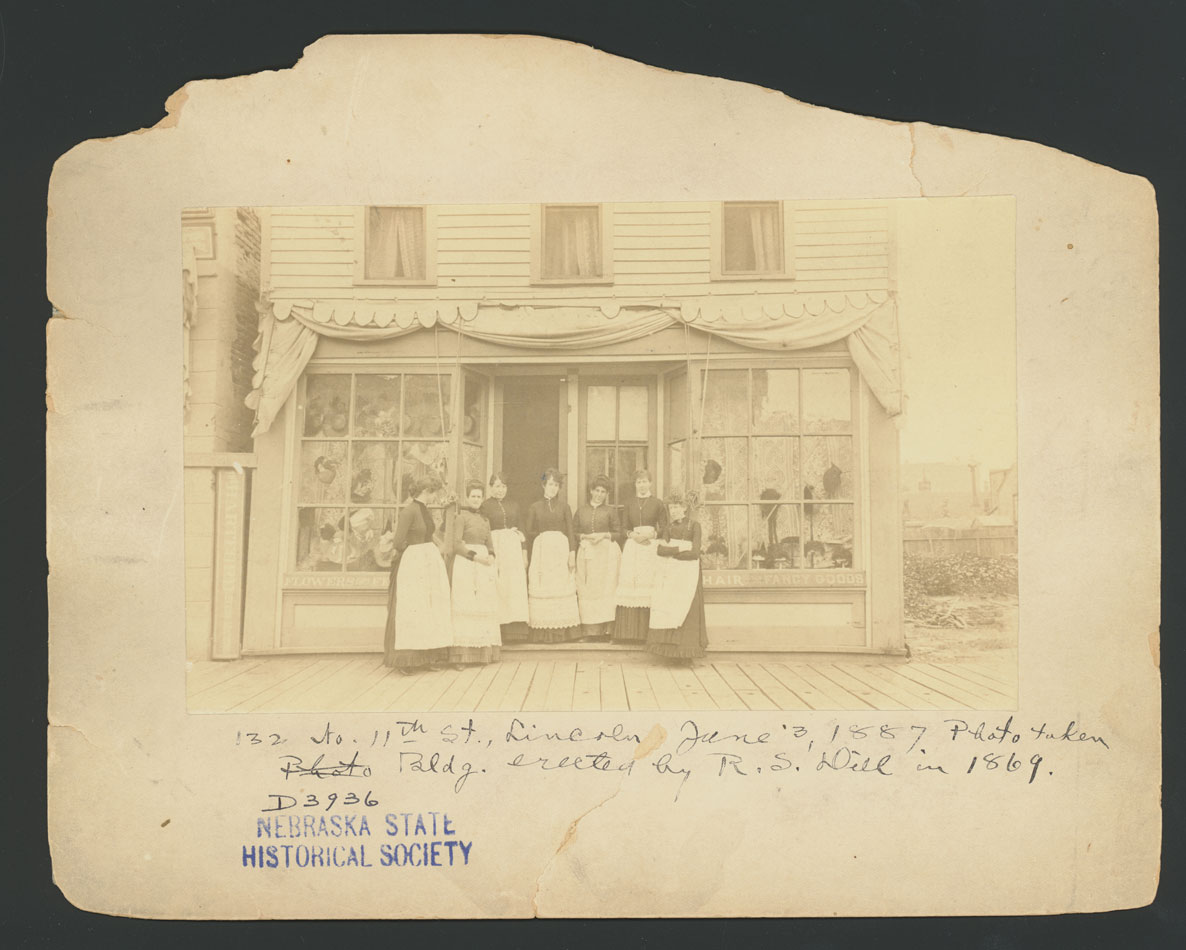 FLOWERS
HAIR AND FANCY GOODS
132 No. 11th St., Lincoln, June 3, 1887 Photo taken
Photo Bldg. erected by R. S. Dill in 1869.
D3936
NEBRASKA STATE
HISTORICAL SOCIETY